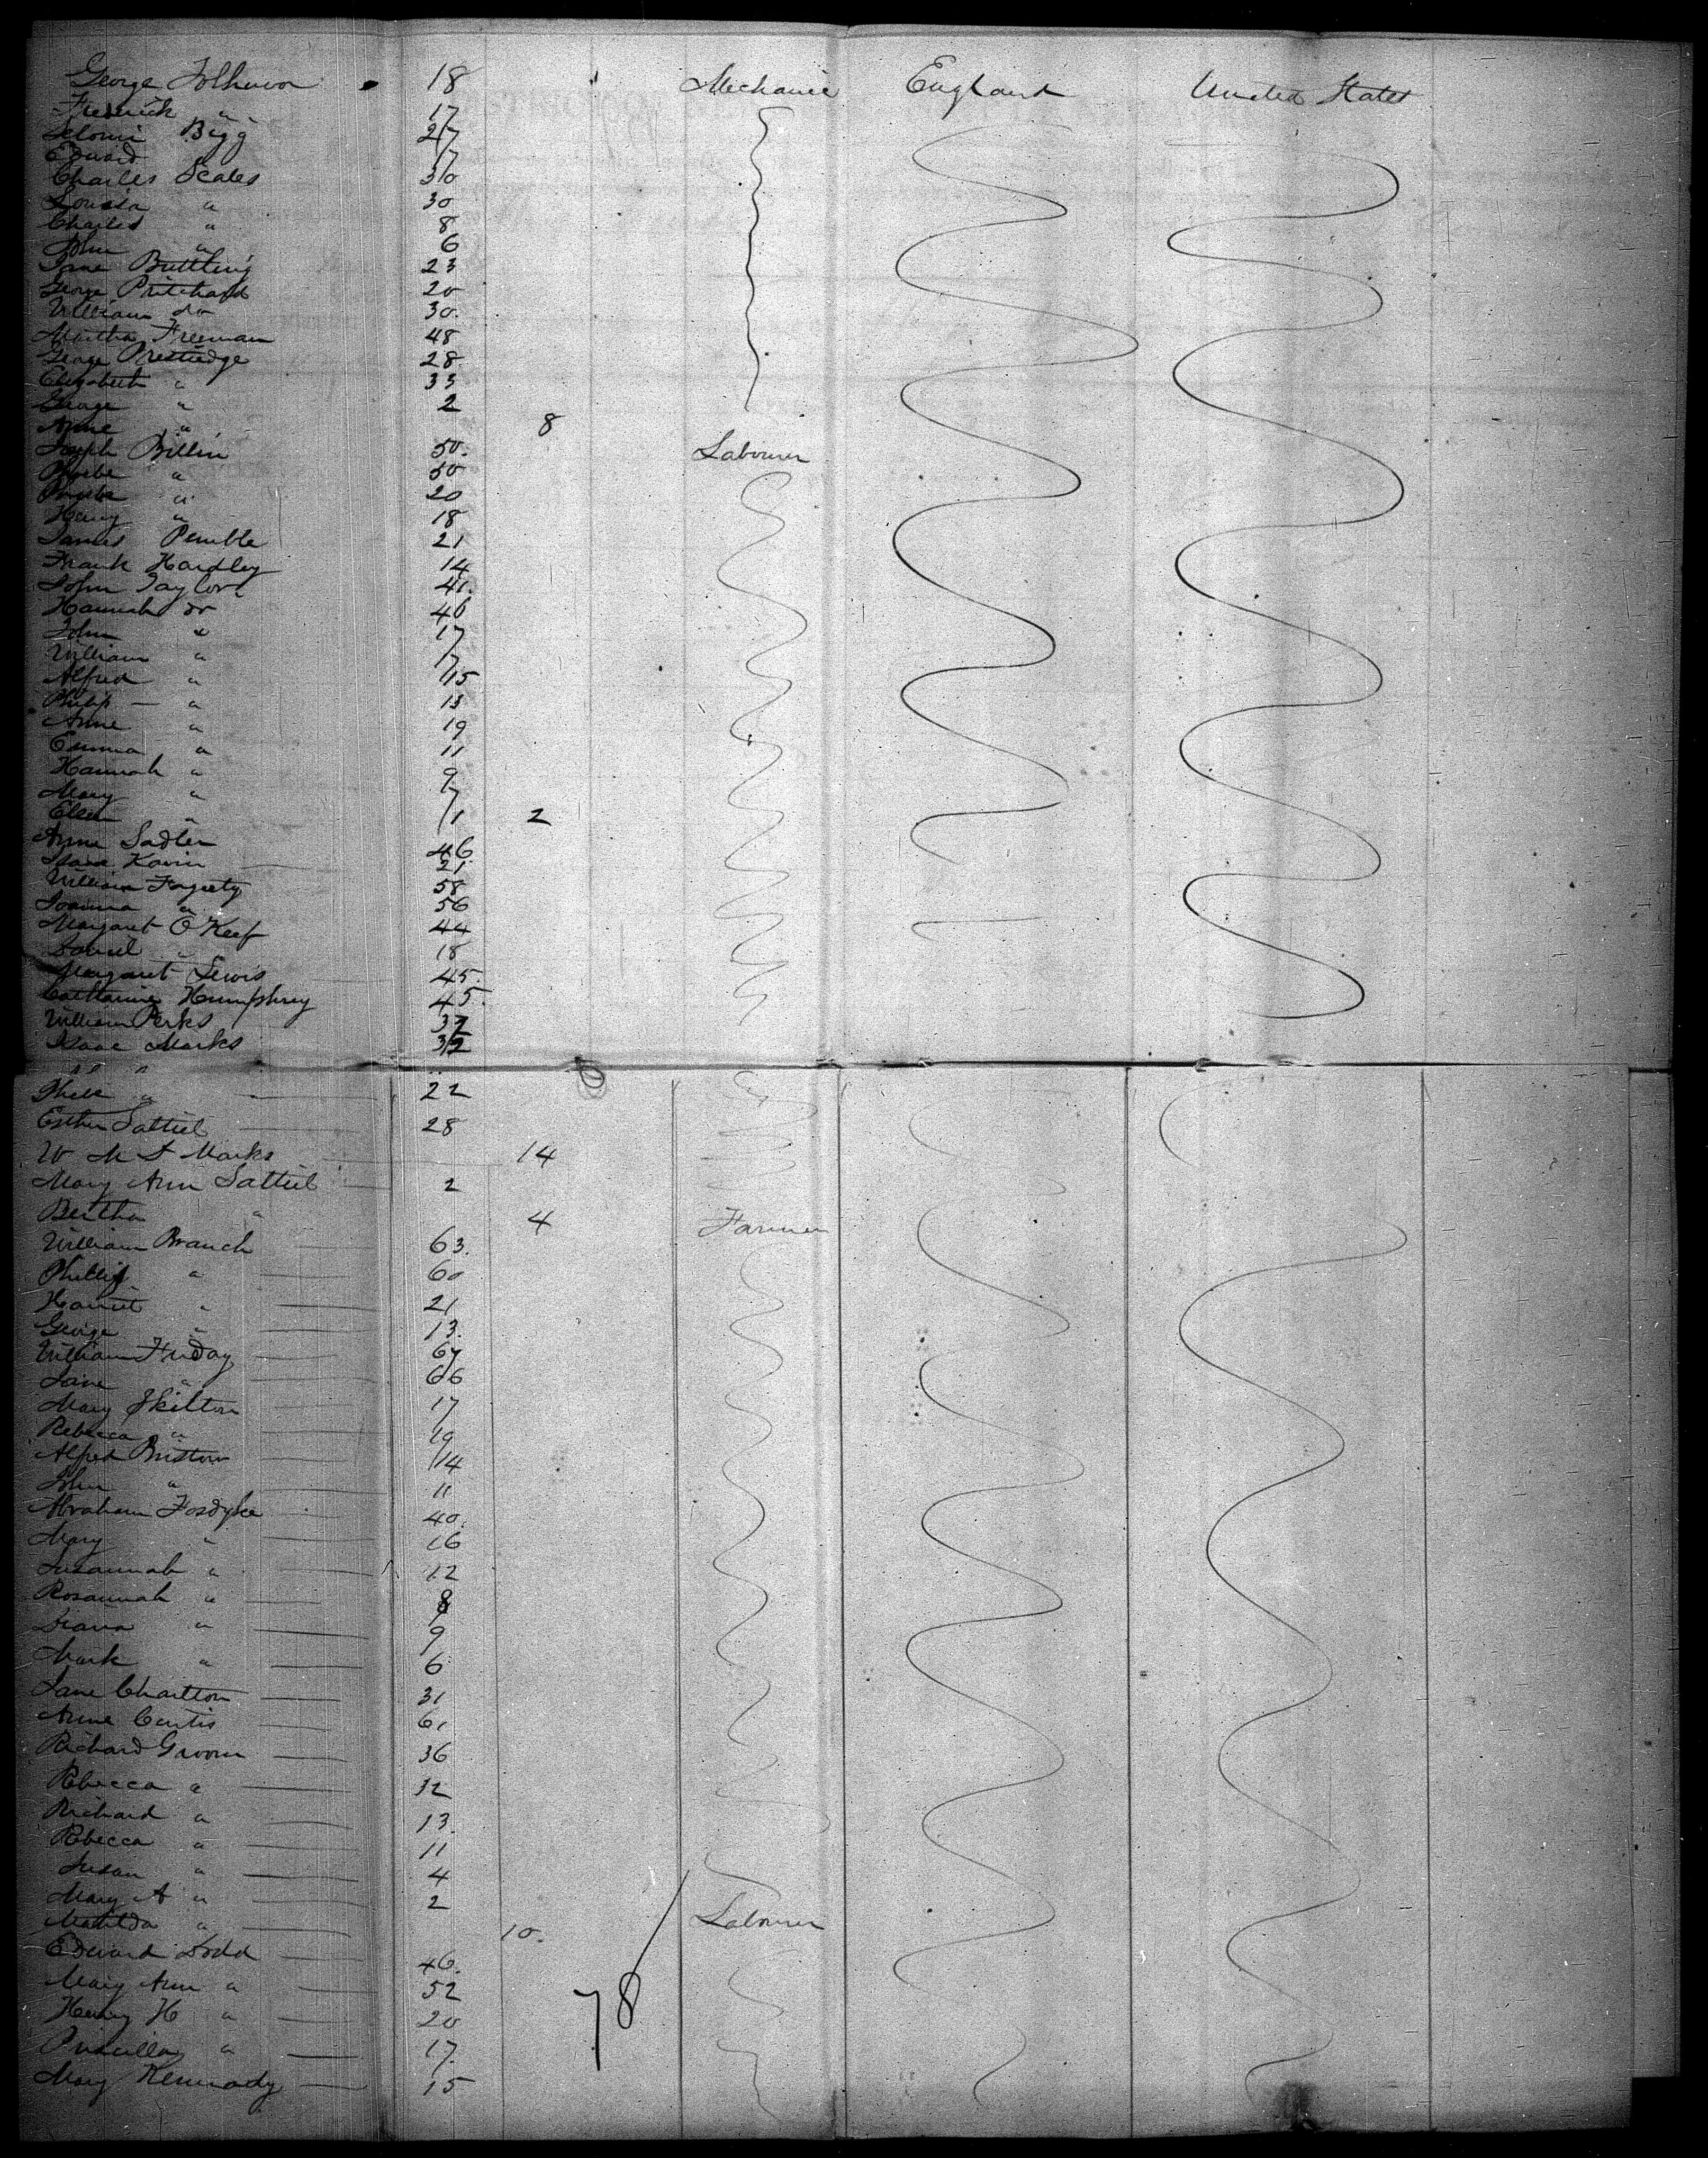 George 18 Mechanic England United States
Frederick " 17
Bigg 27
Edward " 17
Charles Scales 30
Louisa " 30
Charles " 8
John " 6
Jane Buttling 23
George Pritchard 20
William do 30
Martha Freeman 48
George Prestidge 28
Elizabeth " 33
George " 2
Anne " 8
Joseph Billin 50 Labourer
Phoebe " 50
Phoebe " 20
Henry " 18
James Pemble 21
Frank Hardley 14
John Taylor 41
Hannah do 46
John " 17
William " 17
Alfred " 15
Philip " 13
Anne " 19
Emma " 11
Hannah " 9
Mary " 7
Ellen " 1 2
Anne Sadler 46
21
William Fogerty 58
Joanna " 56
Margaret O Keef 44
Daniel " 18
Margaret Lewis 45
Catharine Humphrey 45
William Perks 37
Isaac Marks 32
" "
" 22
Esther Sattiel 28
W M S Marks 14
Mary Ann Sattiel 2
Bertha " 4 Farmer
William Branch 63
Phillis " 60
Harriet " 21
George " 13
William Friday 67
Jane " 66
Mary Skilton 17
Rebecca " 19
Alfred Bristow 14
John " 11
Abraham Fosdyke 40
Mary " 16
Susannah " 12
Rosannah " 8
Diana " 9
Mark " 6
Jane Charlton 31
Anne Curtis 61
Richard Groom 36
Rebecca " 32
Richard " 13
Rebecca " 11
Susan " 4
Mary A " 2
Matilda " 10 Labourer
Edward Dodd 46
Mary Ann " 52
Henry H " 20
78
Priscilla " 17
Mary Kennady 15